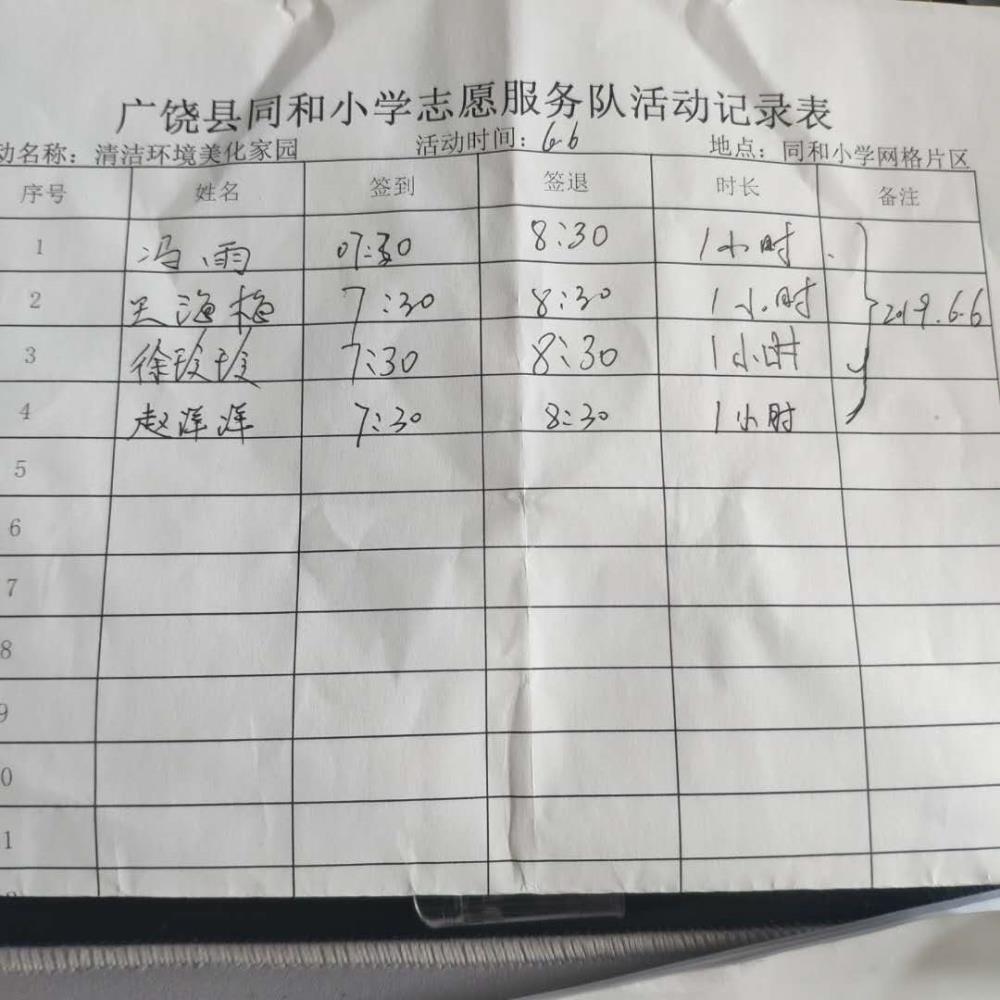 广饶县同和小学志愿服务队活动记录表
动名称：清洁环境美化家园 活动时间：6.6 地点：同和小学网格片区
序号 姓名 签到 签退 时长 备注
1 冯雨 07:30 8:30 1小时
2 王海梅 7:30 8:30 1小时 2019.6.6
3 徐玟玟 7:30 8:30 1小时
4 赵洋洋 7:30 8:30 1小时
5
6
7
8
9
0
1